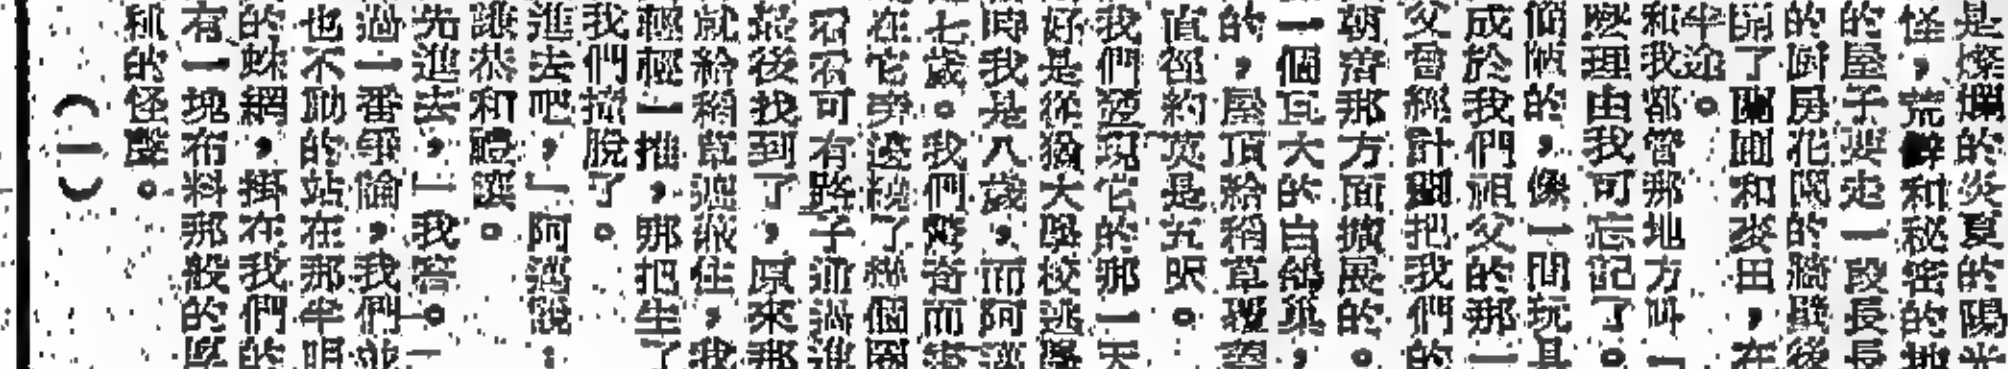 是燦爛的炎夏的陽光
怪，荒僻和秘密的地
的屋子要走一段長長
的廚房花園的牆壁後
開了園和麥田，在
半途。
和我都管那地方叫「
麼理由我可忘記了。
個的，像一間玩具
成於我們祖父的那一
父曾經計劃把我們的
朝着那方面擴展的。
一個瓦大的白鴿巢，
的，屋頂給稻草覆蓋
直徑約莫是五呎。
我們發現它的那一天
好是從猶大學校逃學
時我是八歲，而阿
七歲。我們驚奇而
在它旁邊繞了幾個圈
看看可有路子通過進
最後找到了，原來那
就給稻草遮蔽住，我
輕輕一推，那把生了
我們擠脫了。
進去吧，」阿鴻說：
謙恭和聽淇。
先進去，」我答。一
過一番爭論，我們並
也不動的站在那半明
的蛛網，掛在我們的
有一塊布料那般的厚
和的怪聲。
（一）